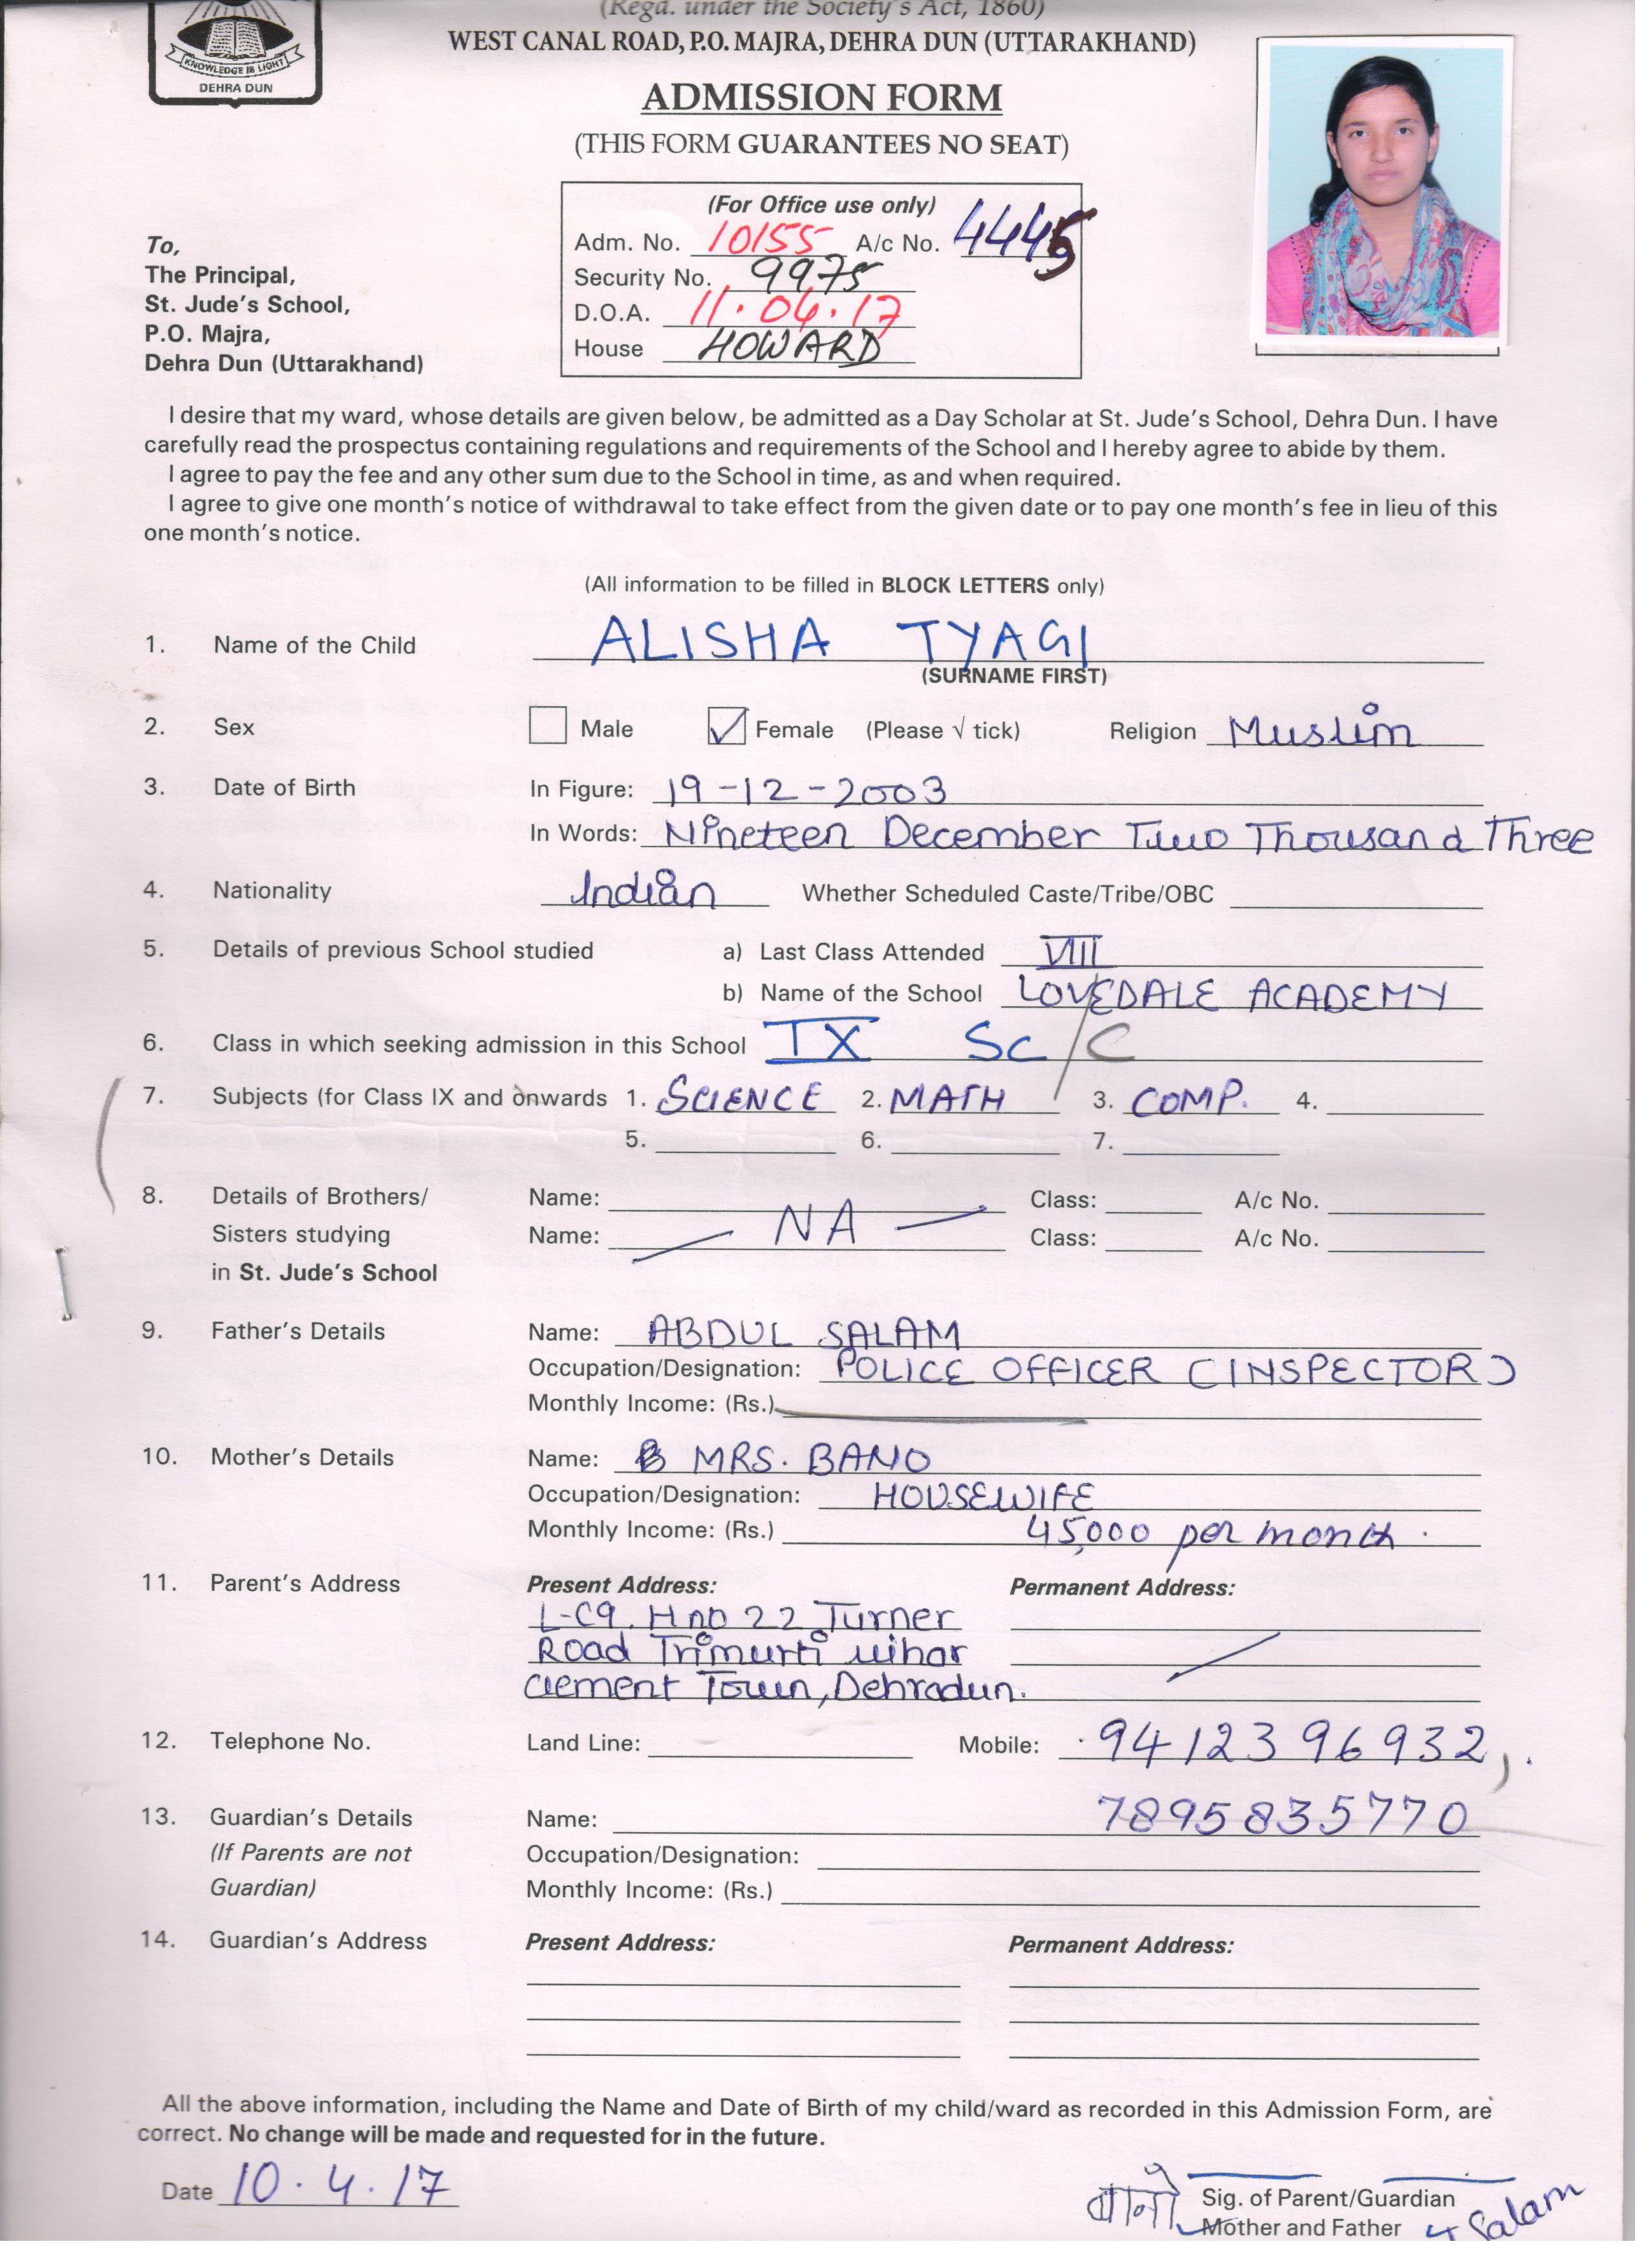 (Regd. under the Society's Act, 1860)
WEST CANAL ROAD, P.O. MAJRA, DEHRA DUN (UTTARAKHAND)
KNOWLEDGE IS LIGHT
DEHRA DUN
ADMISSION FORM
(THIS FORM GUARANTEES NO SEAT)
(For Office use only)
Adm. No. 10155 A/c No. 4445
Security No. 9975
D.O.A. 11.04.17
House HOWARD
To,
The Principal,
St. Jude's School,
P.O. Majra,
Dehra Dun (Uttarakhand)
I desire that my ward, whose details are given below, be admitted as a Day Scholar at St. Jude's School, Dehra Dun. I have
carefully read the prospectus containing regulations and requirements of the School and I hereby agree to abide by them.
I agree to pay the fee and any other sum due to the School in time, as and when required.
I agree to give one month's notice of withdrawal to take effect from the given date or to pay one month's fee in lieu of this
one month's notice.
(All information to be filled in BLOCK LETTERS only)
1. Name of the Child ALISHA TYAGI
(SURNAME FIRST)
2. Sex Male Female (Please √ tick) Religion Muslim
3. Date of Birth In Figure: 19-12-2003
In Words: Nineteen December Two Thousand Three
4. Nationality Indian Whether Scheduled Caste/Tribe/OBC
5. Details of previous School studied a) Last Class Attended VIII
b) Name of the School LOVEDALE ACADEMY
6. Class in which seeking admission in this School IX Sc/C
7. Subjects (for Class IX and onwards 1. SCIENCE 2. MATH 3. COMP. 4.
5. 6. 7.
8. Details of Brothers/ Name: Class: A/c No.
Sisters studying Name: — NA — Class: A/c No.
in St. Jude's School
9. Father's Details Name: ABDUL SALAM
Occupation/Designation: POLICE OFFICER (INSPECTOR)
Monthly Income: (Rs.)
10. Mother's Details Name: MRS. BANO
Occupation/Designation: HOUSEWIFE
Monthly Income: (Rs.) 45,000 per month.
11. Parent's Address Present Address: Permanent Address:
L-C9. H no 22 Turner
Road Trimurti vihar
clement Town, Dehradun.
12. Telephone No. Land Line: Mobile: 9412396932,
13. Guardian's Details Name: 7895835770
(If Parents are not Occupation/Designation:
Guardian) Monthly Income: (Rs.)
14. Guardian's Address Present Address: Permanent Address:
All the above information, including the Name and Date of Birth of my child/ward as recorded in this Admission Form, are
correct. No change will be made and requested for in the future.
Date 10.4.17
बानो Sig. of Parent/Guardian
Mother and Father Salam